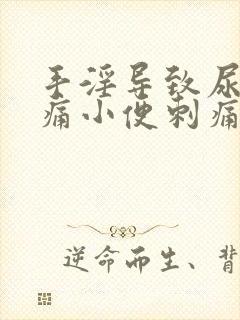 手淫导致尿
痛小便刺痛
逆命而生、背